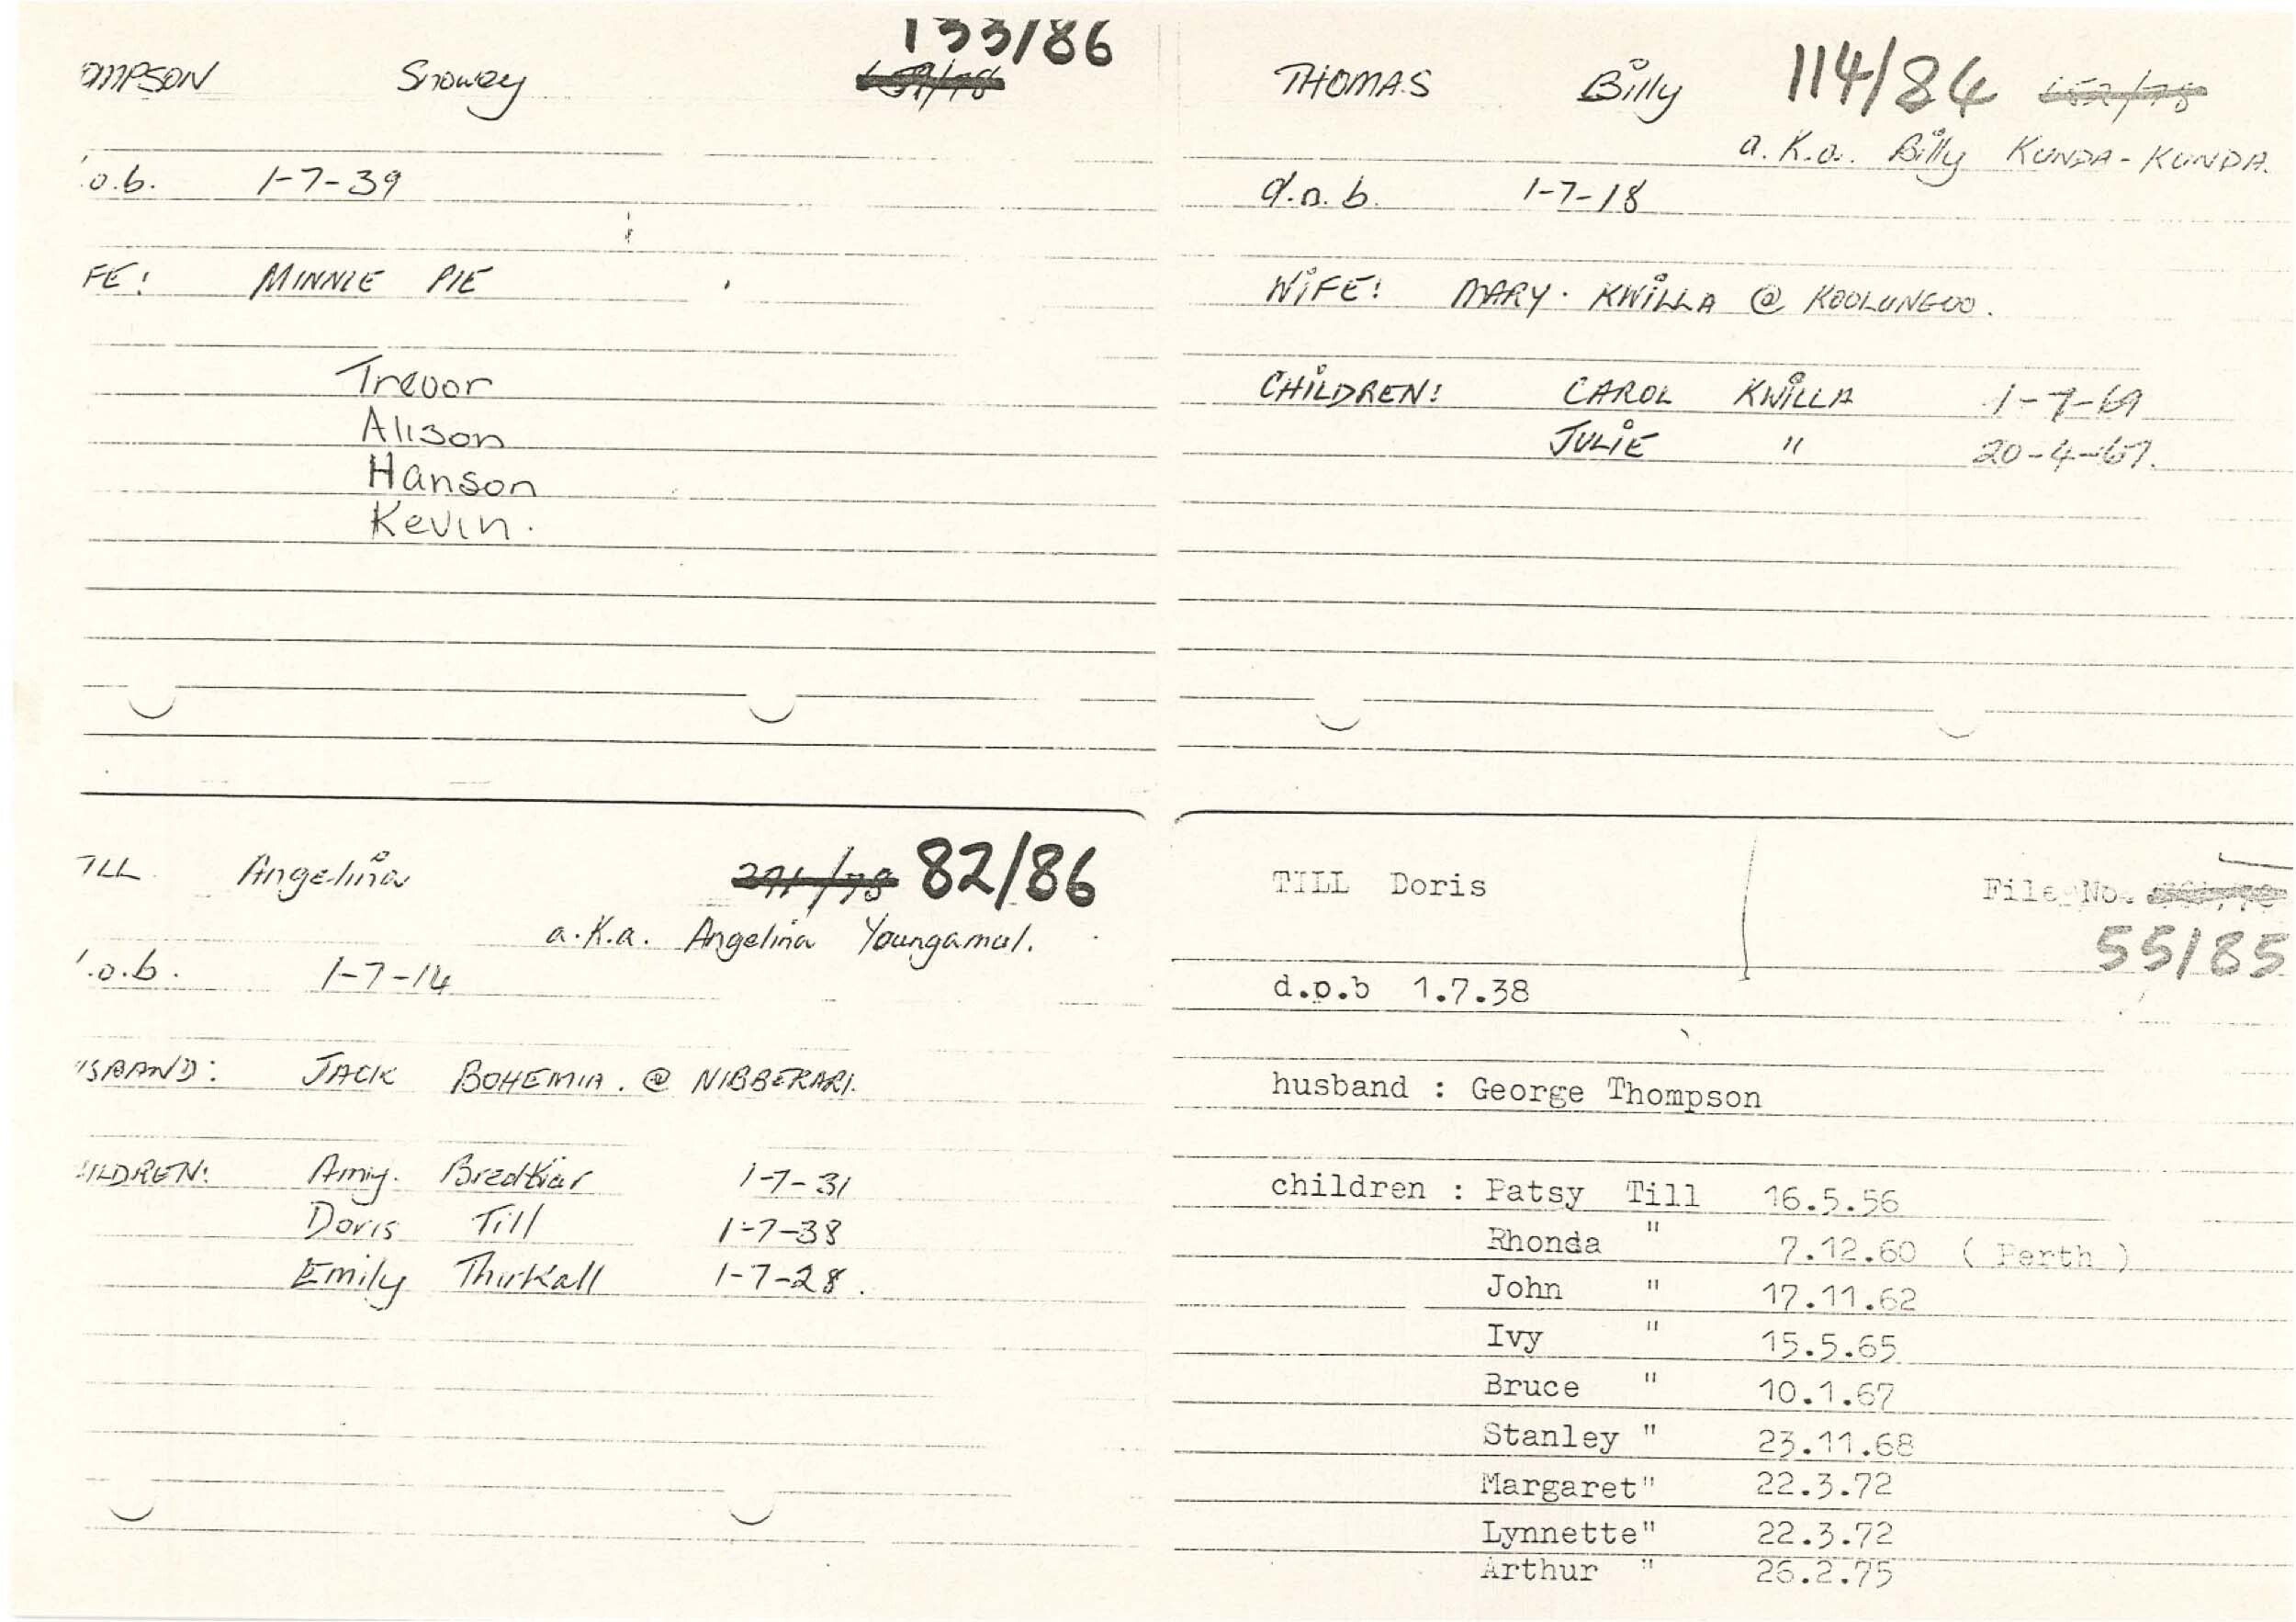 OMPSON Snowey 133/86
.o.b. 1-7-39
FE: MINNIE PIE
Trevor
Alison
Hanson
Kevin.
THOMAS Billy 114/84
a.K.a. Billy KUNDA-KUNDA.
d.o.b. 1-7-18
WIFE: MARY. KWILLA @ KOOLUNGOO.
CHILDREN: CAROL KWILLA 1-7-69
JULIE " 20-4-67.
ILL Angelina 82/86
a.K.a. Angelina Youngamul.
.o.b. 1-7-14
SBAND: JACK BOHEMIA. @ NIBBERARI.
ILDREN: Amy. Bredkiar 1-7-31
Doris Till 1-7-38
Emily Thirkall 1-7-28.
TILL Doris File No.
55/85
d.o.b 1.7.38
husband : George Thompson
children : Patsy Till 16.5.56
Rhonda " 7.12.60 ( Perth )
John " 17.11.62
Ivy " 15.5.65
Bruce " 10.1.67
Stanley " 23.11.68
Margaret" 22.3.72
Lynnette" 22.3.72
Arthur " 26.2.75